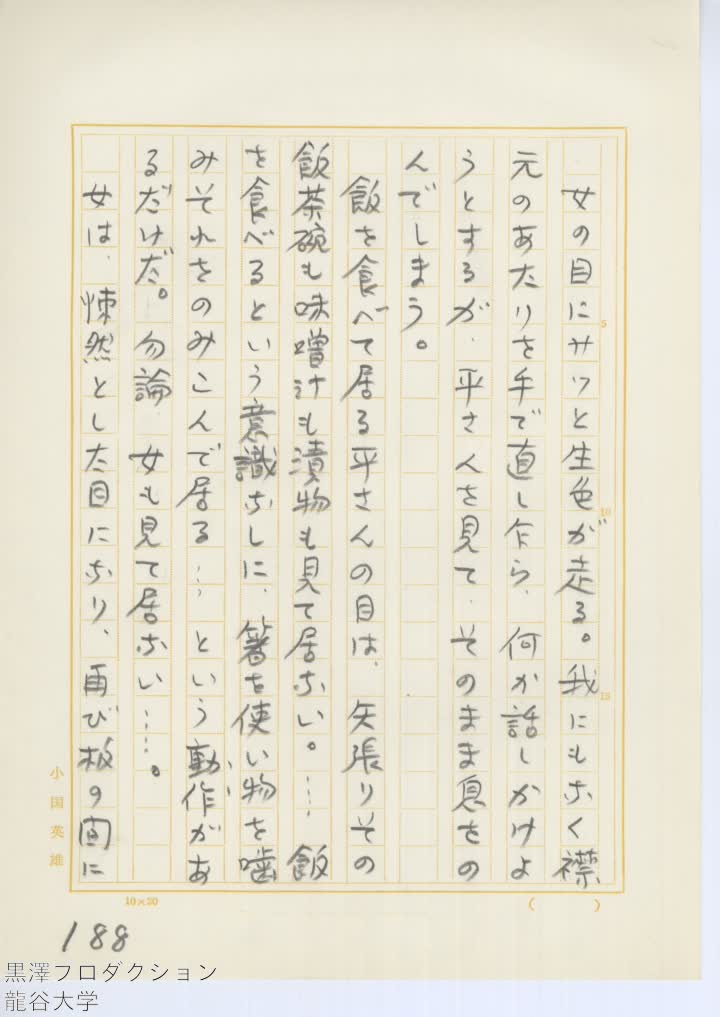 女の目にサッと生色が走る。我にもなく襟
元のあたりを手で直し乍ら、何か話しかけよ
うとするが、平さんを見て、そのまま息をの
んでしまう。
飯を食べて居る平さんの目は、矢張りその
飯茶碗も味噌汁も漬物も見て居ない。……飯
を食べるという意識なしに、箸を使い物を噛
みそれをのみこんで居る……という動作があ
るだけだ。勿論、女も見て居ない……。
女は、悚然とした目になり、再び板の間に
5
10
15
小国英雄
10×20
( )
188
黒澤プロダクション
龍谷大学